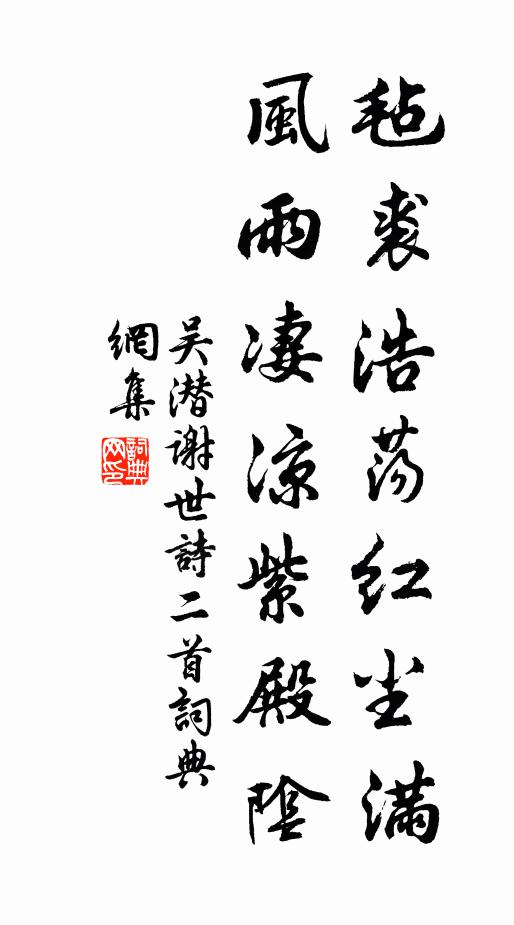 毡裘浩荡红尘满
風雨凄涼紫殿陰
吴潜謝世詩二首詞典
網集
詞典网印